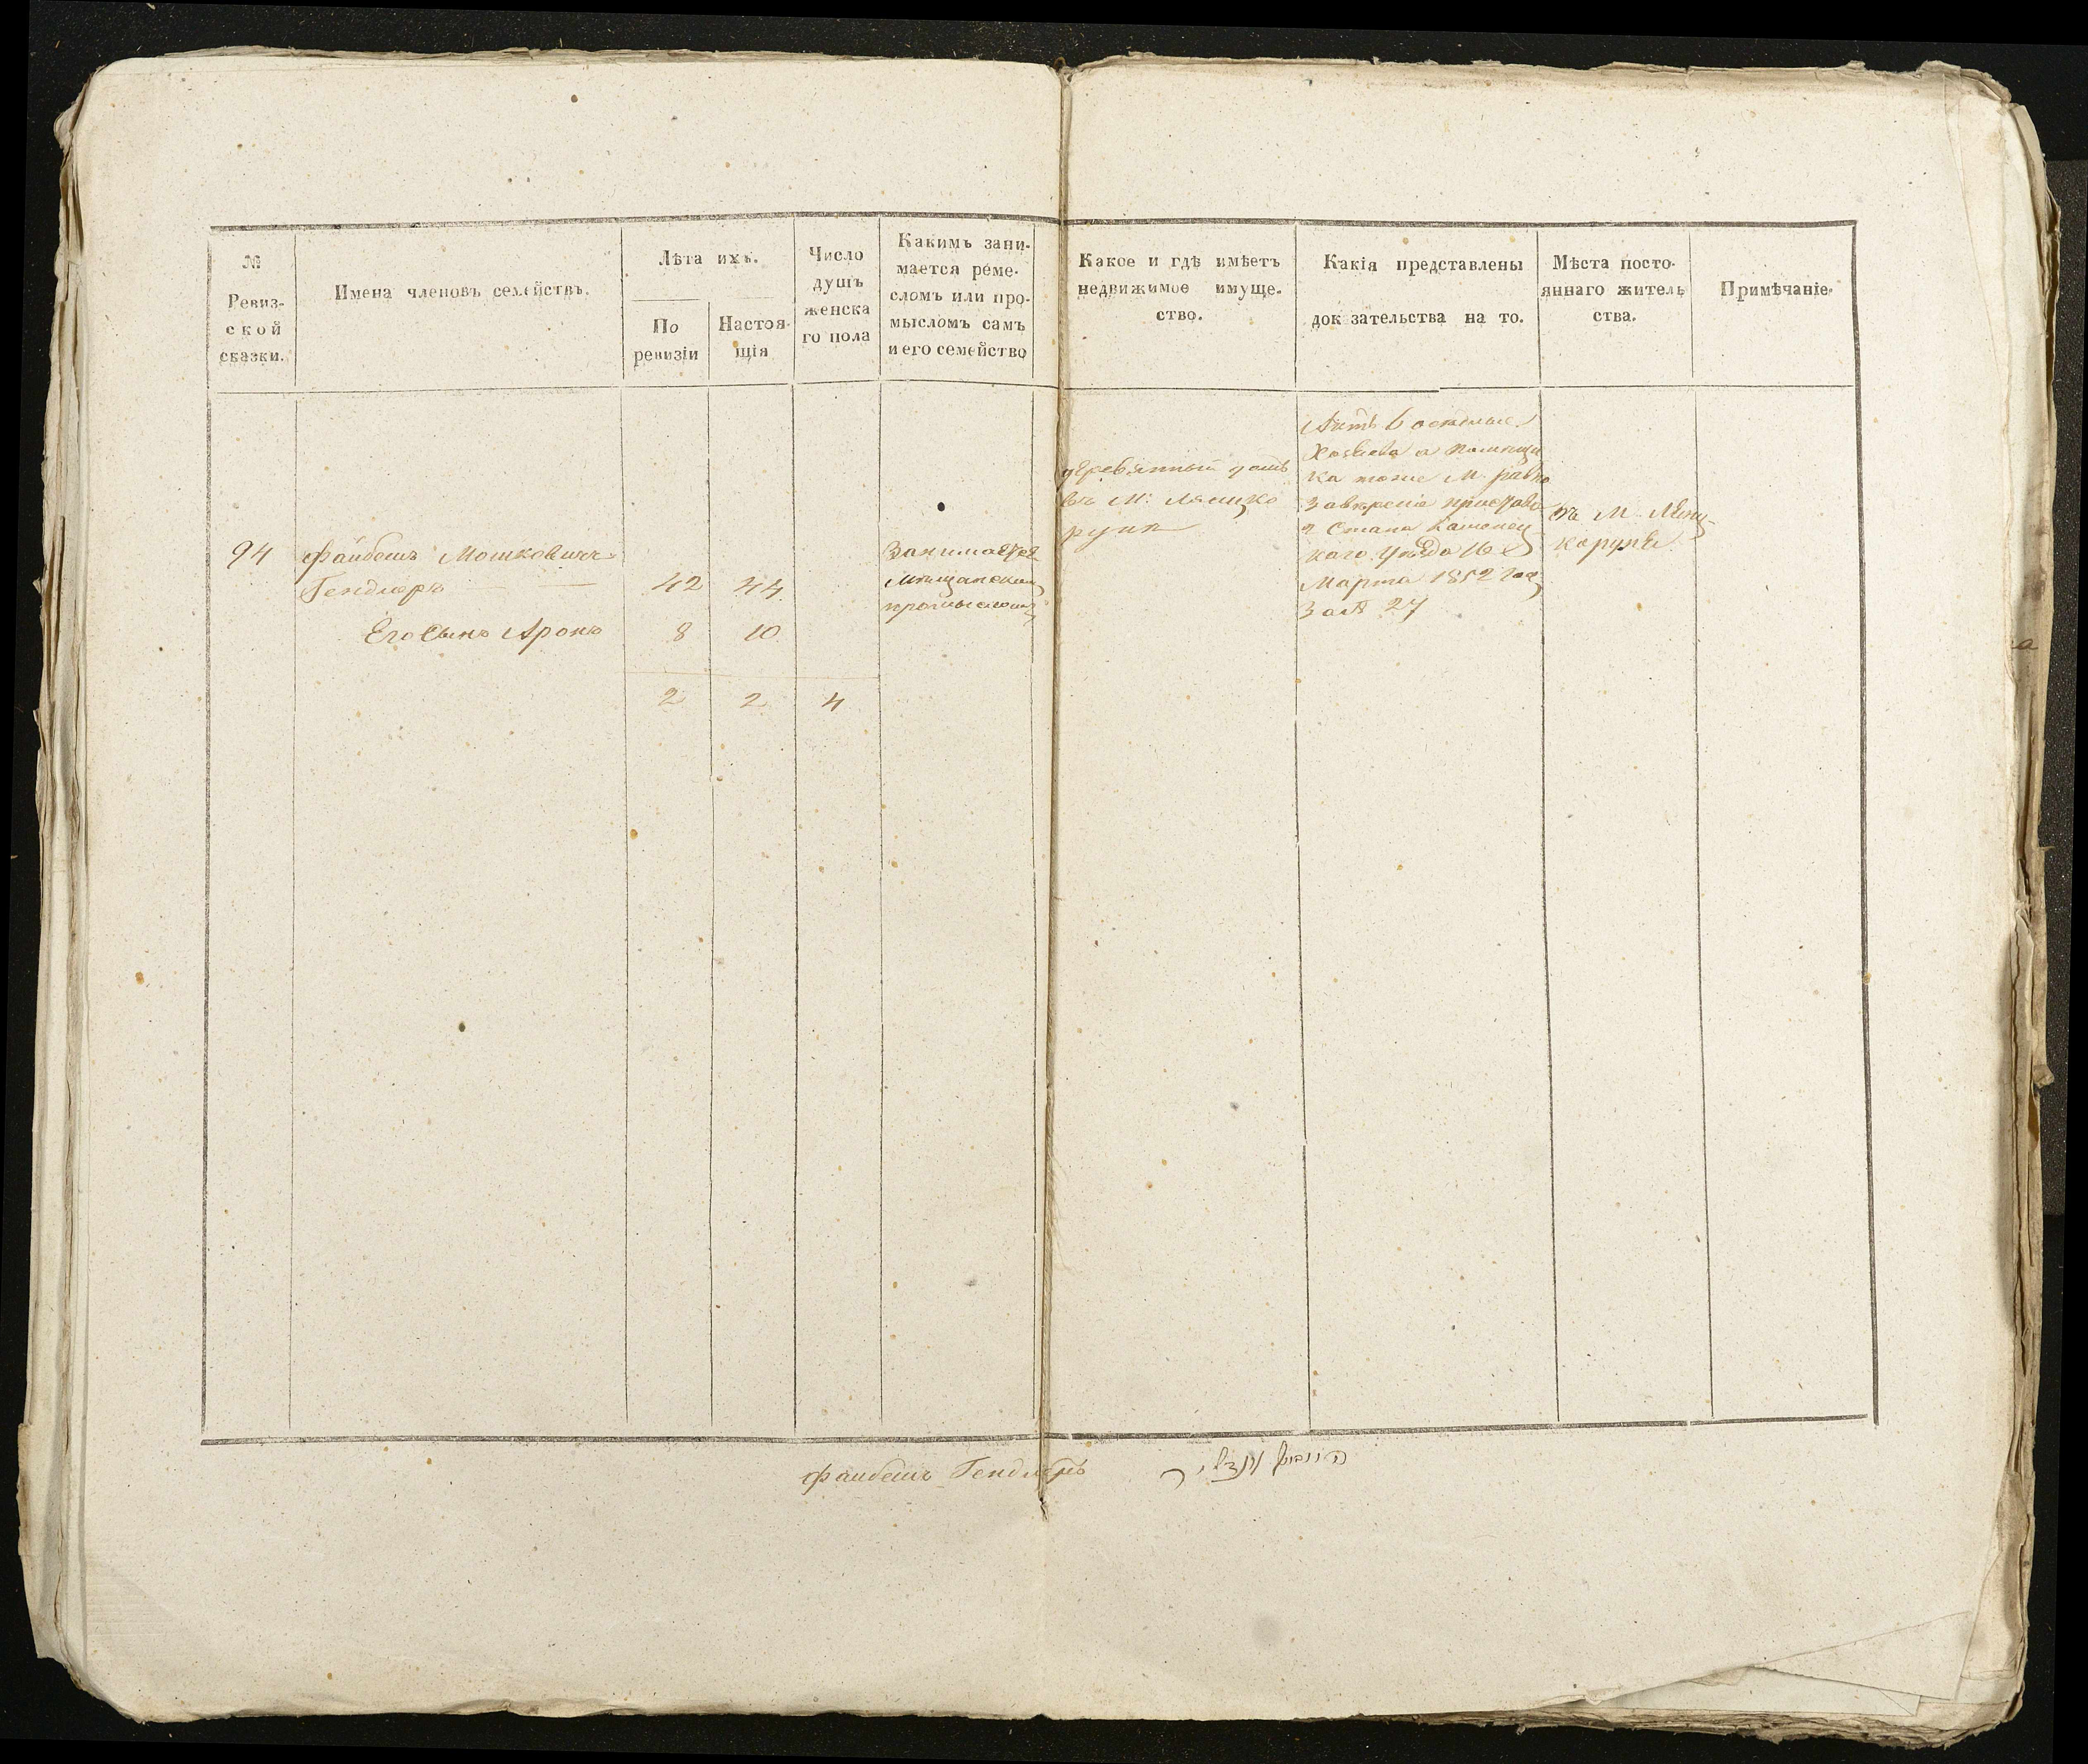 №
Ревиз-
ской
сказки.
Имена членовъ семействъ.
Лѣта ихъ.
По
ревизіи
Настоя-
щія
Число
душъ
женска
го пола
Какимъ зани-
мается реме-
сломъ или про-
мысломъ самъ
и его семейство
Какое и гдѣ имѣетъ
недвижимое имуще-
ство.
Какія представлены
док зательства на то.
Мѣста посто-
яннаго житель
ства.
Примѣчаніе.
94
Файбешъ Мошковичъ
Гендлеръ
42
44
Его Сынъ Аронъ
8
10
2
2
4
Занимается
Мещанскимъ
промысломъ
деревянный домъ
въ М. Ляцко
рунѣ
Актъ
ка тоже М.
2 Стана Каменец
каго Уѣзда 16
Марта 1852 года
За № 27
въ М. Ляц-
корунѣ
Файбешъ Гендлеръ